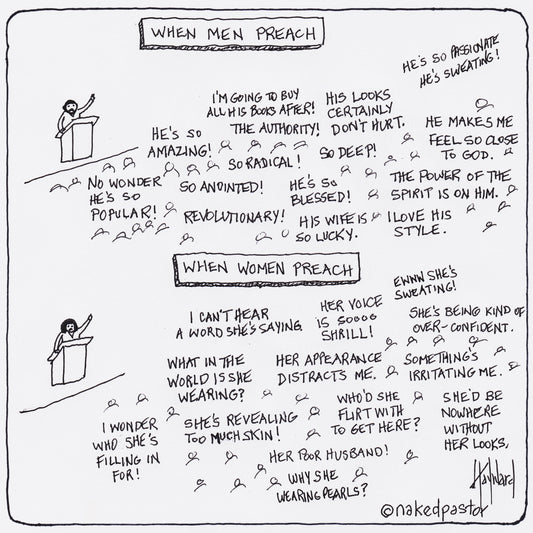 WHEN MEN PREACH
HE'S SO PASSIONATE
HE'S SWEATING!
I'M GOING TO BUY
ALL HIS BOOKS AFTER!
HIS LOOKS
CERTAINLY
DON'T HURT.
HE'S SO
AMAZING!
THE AUTHORITY!
HE MAKES ME
FEEL SO CLOSE
TO GOD.
SO RADICAL!
SO DEEP!
NO WONDER
HE'S SO
POPULAR!
SO ANOINTED!
HE'S SO
BLESSED!
THE POWER OF THE
SPIRIT IS ON HIM.
REVOLUTIONARY!
HIS WIFE IS
SO LUCKY.
I LOVE HIS
STYLE.
WHEN WOMEN PREACH
EWWW SHE'S
SWEATING!
I CAN'T HEAR
A WORD SHE'S SAYING
HER VOICE
IS SOOOO
SHRILL!
SHE'S BEING KIND OF
OVER-CONFIDENT.
WHAT IN THE
WORLD IS SHE
WEARING?
HER APPEARANCE
DISTRACTS ME.
SOMETHING'S
IRRITATING ME.
I WONDER
WHO SHE'S
FILLING IN
FOR!
SHE'S REVEALING
TOO MUCH SKIN!
WHO'D SHE
FLIRT WITH
TO GET HERE?
SHE'D BE
NOWHERE
WITHOUT
HER LOOKS,
HER POOR HUSBAND!
WHY SHE
WEARING PEARLS?
Hayward
©nakedpastor